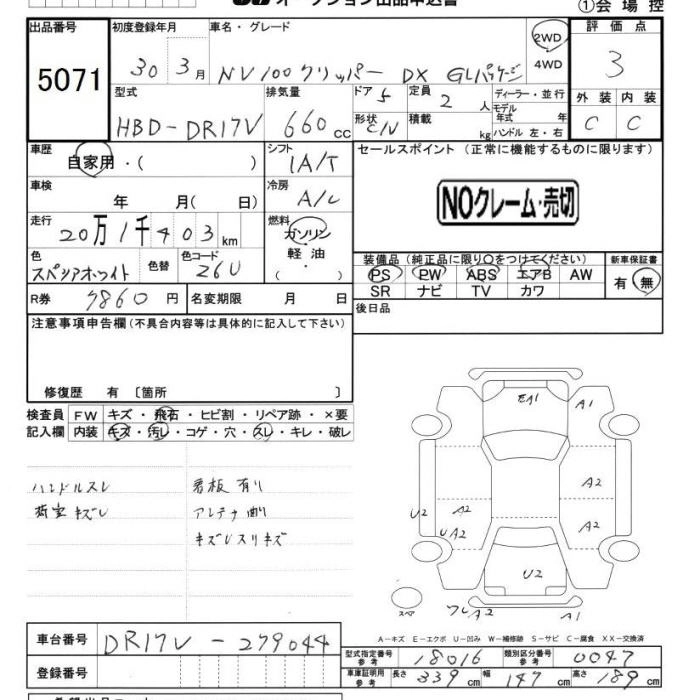 オークション出品申込書
①会場控
出品番号
5071
初度登録年月
30 3月
車名・グレード
NV100クリッパー DX GLパッケージ
2WD
4WD
評価点
3
外装 内装
C C
型式
HBD-DR17V
排気量
660cc
ドア 5
形状 C/V
定員 2 人
積載 kg
ディーラー・並行
モデル年式 年
ハンドル 左・右
車歴
自家用・( )
シフト
IA/T
セールスポイント (正常に機能するものに限ります)
NOクレーム・売切
車検
年 月( 日)
冷房
A/C
走行
20万1千403km
燃料
ガソリン
軽油
色
スペリアホワイト
色替
色コード
26U
装備品 (純正品に限り○をつけてください)
PS PW ABS エアB AW
SR ナビ TV カワ
新車保証書
有・無
R券 7860円
名変期限 月 日
後日品
注意事項申告欄(不具合内容等は具体的に記入して下さい)
修復歴 有 〔箇所 〕
検査員記入欄
FW キズ・飛石・ヒビ割・リペア跡・×要
内装 キズ・汚レ・コゲ・穴・スレ・キレ・破レ
ハンドルスレ
荷室キズU
看板有り
アンテナ曲り
キズUスリキズ
EA1
A1
A2
A2
U2
A2
UA2
U2
スペア
フレA2
A1
A-キズ E-エクボ U-凹み W-補修跡 S-サビ C-腐食 XX-交換済
車台番号
DR17V-279044
登録番号
型式指定番号 参考 18016
類別区分番号 参考 0047
車庫証明用 参考
長さ 339cm
幅 147cm
高さ 189cm